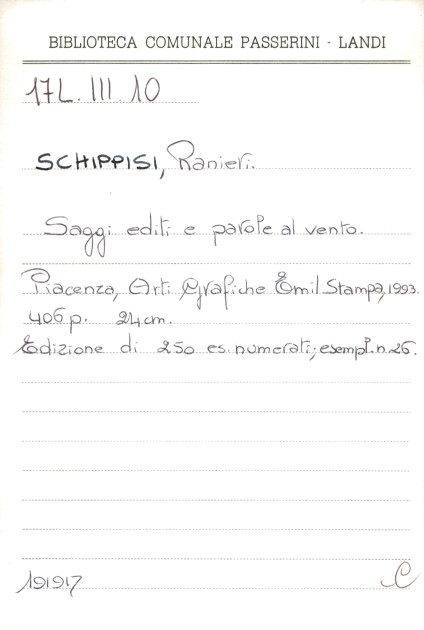 BIBLIOTECA COMUNALE PASSERINI - LANDI
17L. III. 10
SCHIPPISI, Ranieri.
Saggi editi e parole al vento.
Piacenza, Arti Grafiche Emil Stampa, 1993.
406 p. 24 cm.
Edizione di 250 es. numerati; esempl. n. 26.
191917 C